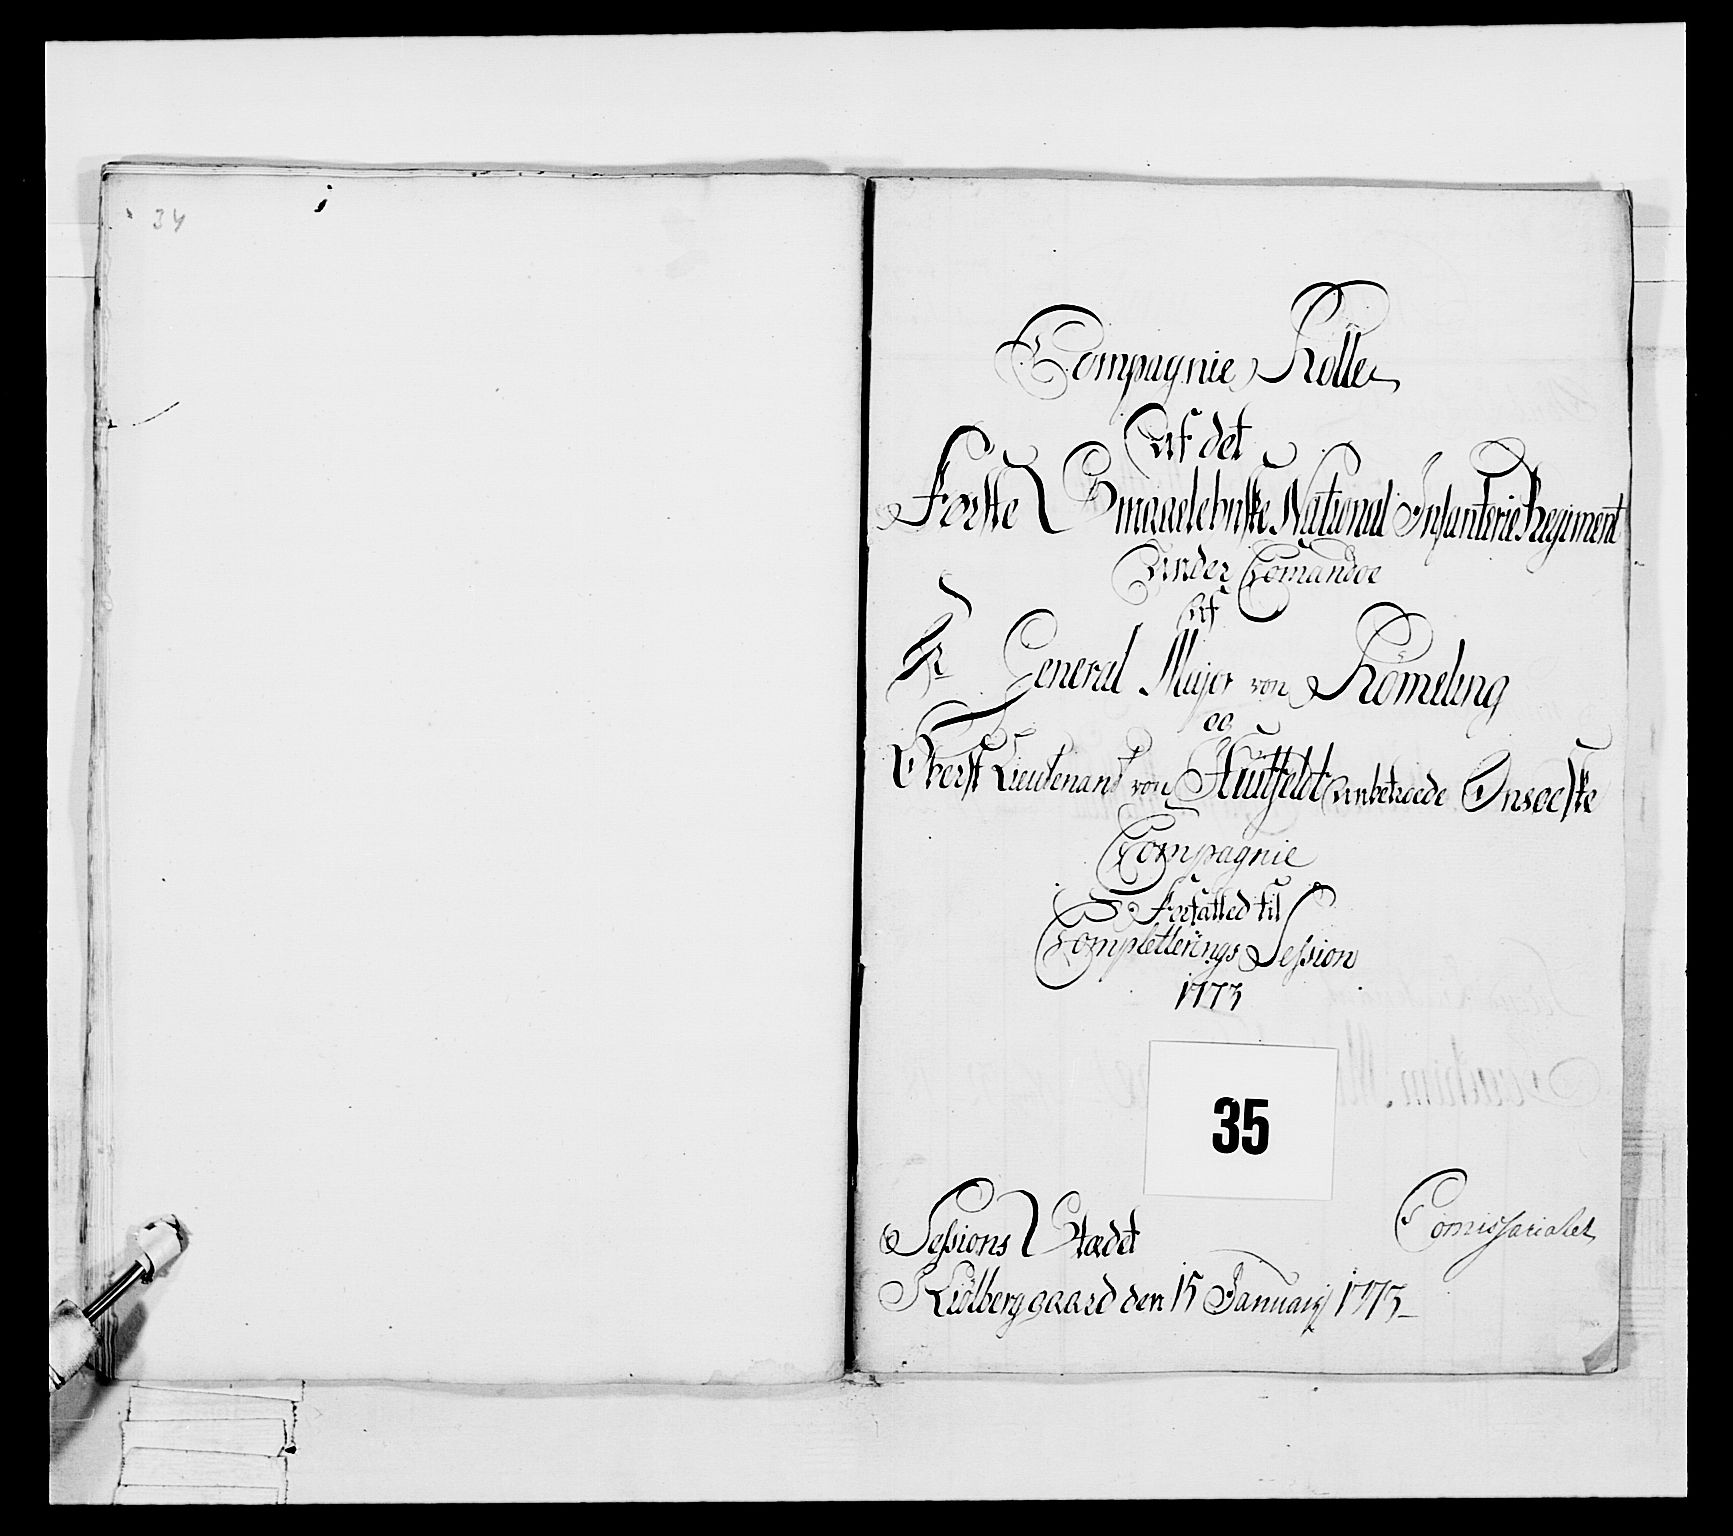 34
Compagnie Rolle
Af det
Første Smaalehnske National Infanterie Regiment
Under Comandoe
Af
Hr General Major von Römeling
og
Oberst Lieutenant von Huitfeldt Anbetroede Onsöeske
Compagnie
Forfatted til
Completterings Session
1773
35
Sessions Stædet
Comissariatet
Kiölberggaard den 15 Januarij 1773